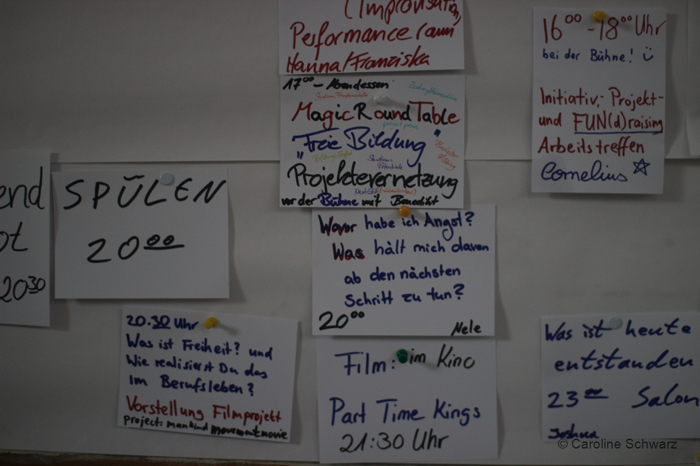 (Improvisation
Performance Raum
Hanna/Franziska
17⁰⁰ - Abendessen
Magic Round Table
"Freie Bildung"
Projektevernetzung
vor der Bühne mit Benedikt
16⁰⁰ - 18⁰⁰ Uhr
bei der Bühne!
Initiativ-, Projekt-
und FUN(d)raising
Arbeitstreffen
Cornelius
end
ot
20³⁰
SPÜLEN
20⁰⁰
Wovor habe ich Angst?
Was hält mich davon
ab den nächsten
Schritt zu tun?
20⁰⁰ Nele
20.30 Uhr
Was ist Freiheit? und
Wie realisierst Du das
im Berufsleben?
Vorstellung Filmprojekt
project: mankind movementmovie
Film: im Kino
Part Time Kings
21:30 Uhr
Was ist heute
entstanden
23⁰⁰ Salon
Joshua
© Caroline Schwarz